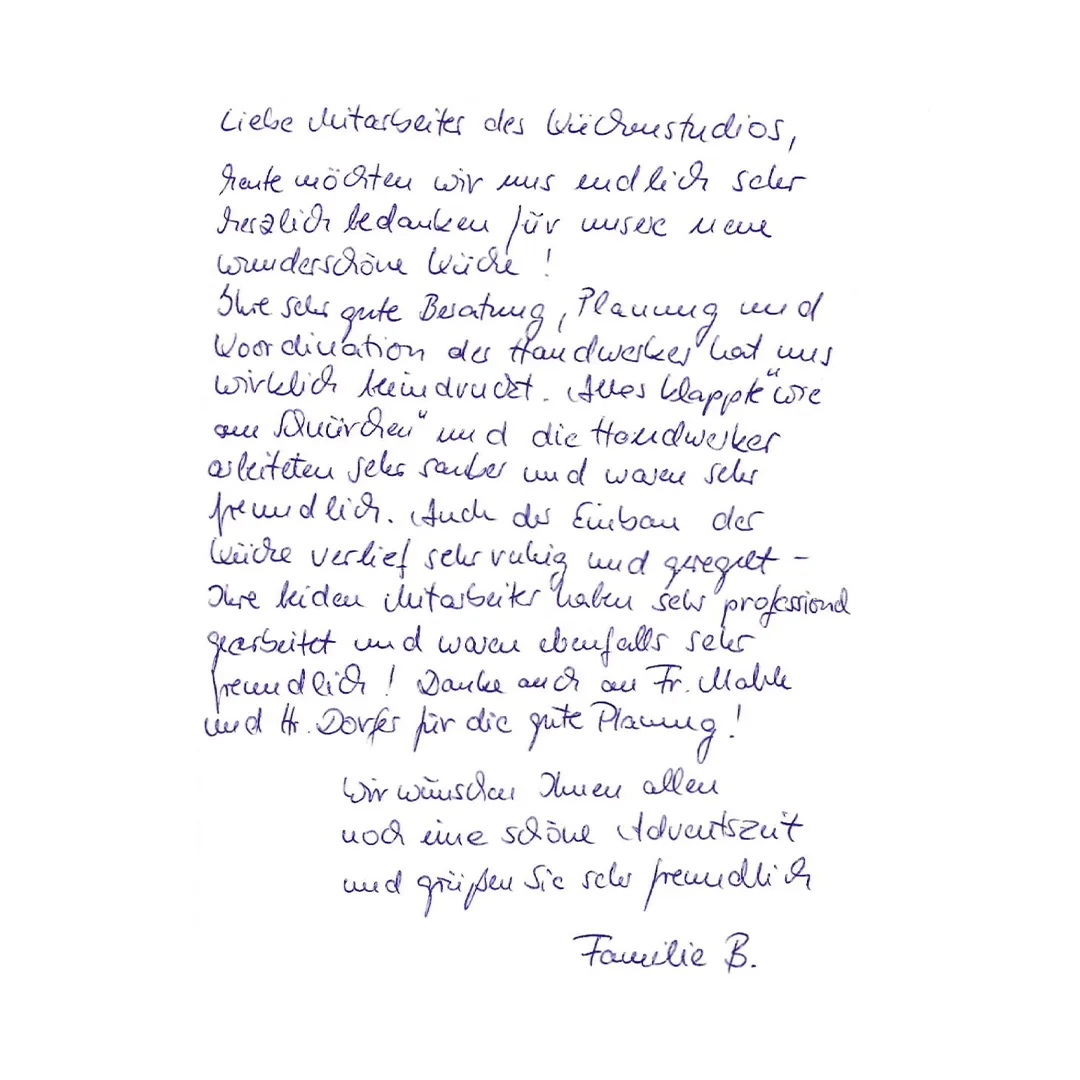 Liebe Mitarbeiter des Küchenstudios,
heute möchten wir uns endlich sehr
herzlich bedanken für unsere neue
wunderschöne Küche!
Ihre sehr gute Beratung, Planung und
Koordination der Handwerker hat uns
wirklich beeindruckt. Alles klappte "wie
am Schnürchen" und die Handwerker
arbeiteten sehr sauber und waren sehr
freundlich. Auch der Einbau der
Küche verlief sehr ruhig und geregelt -
Ihre beiden Mitarbeiter haben sehr professionell
gearbeitet und waren ebenfalls sehr
freundlich! Danke auch an Fr. Mahle
und Hr. Dorfer für die gute Planung!
Wir wünschen Ihnen allen
noch eine schöne Adventszeit
und grüßen Sie sehr freundlich
Familie B.